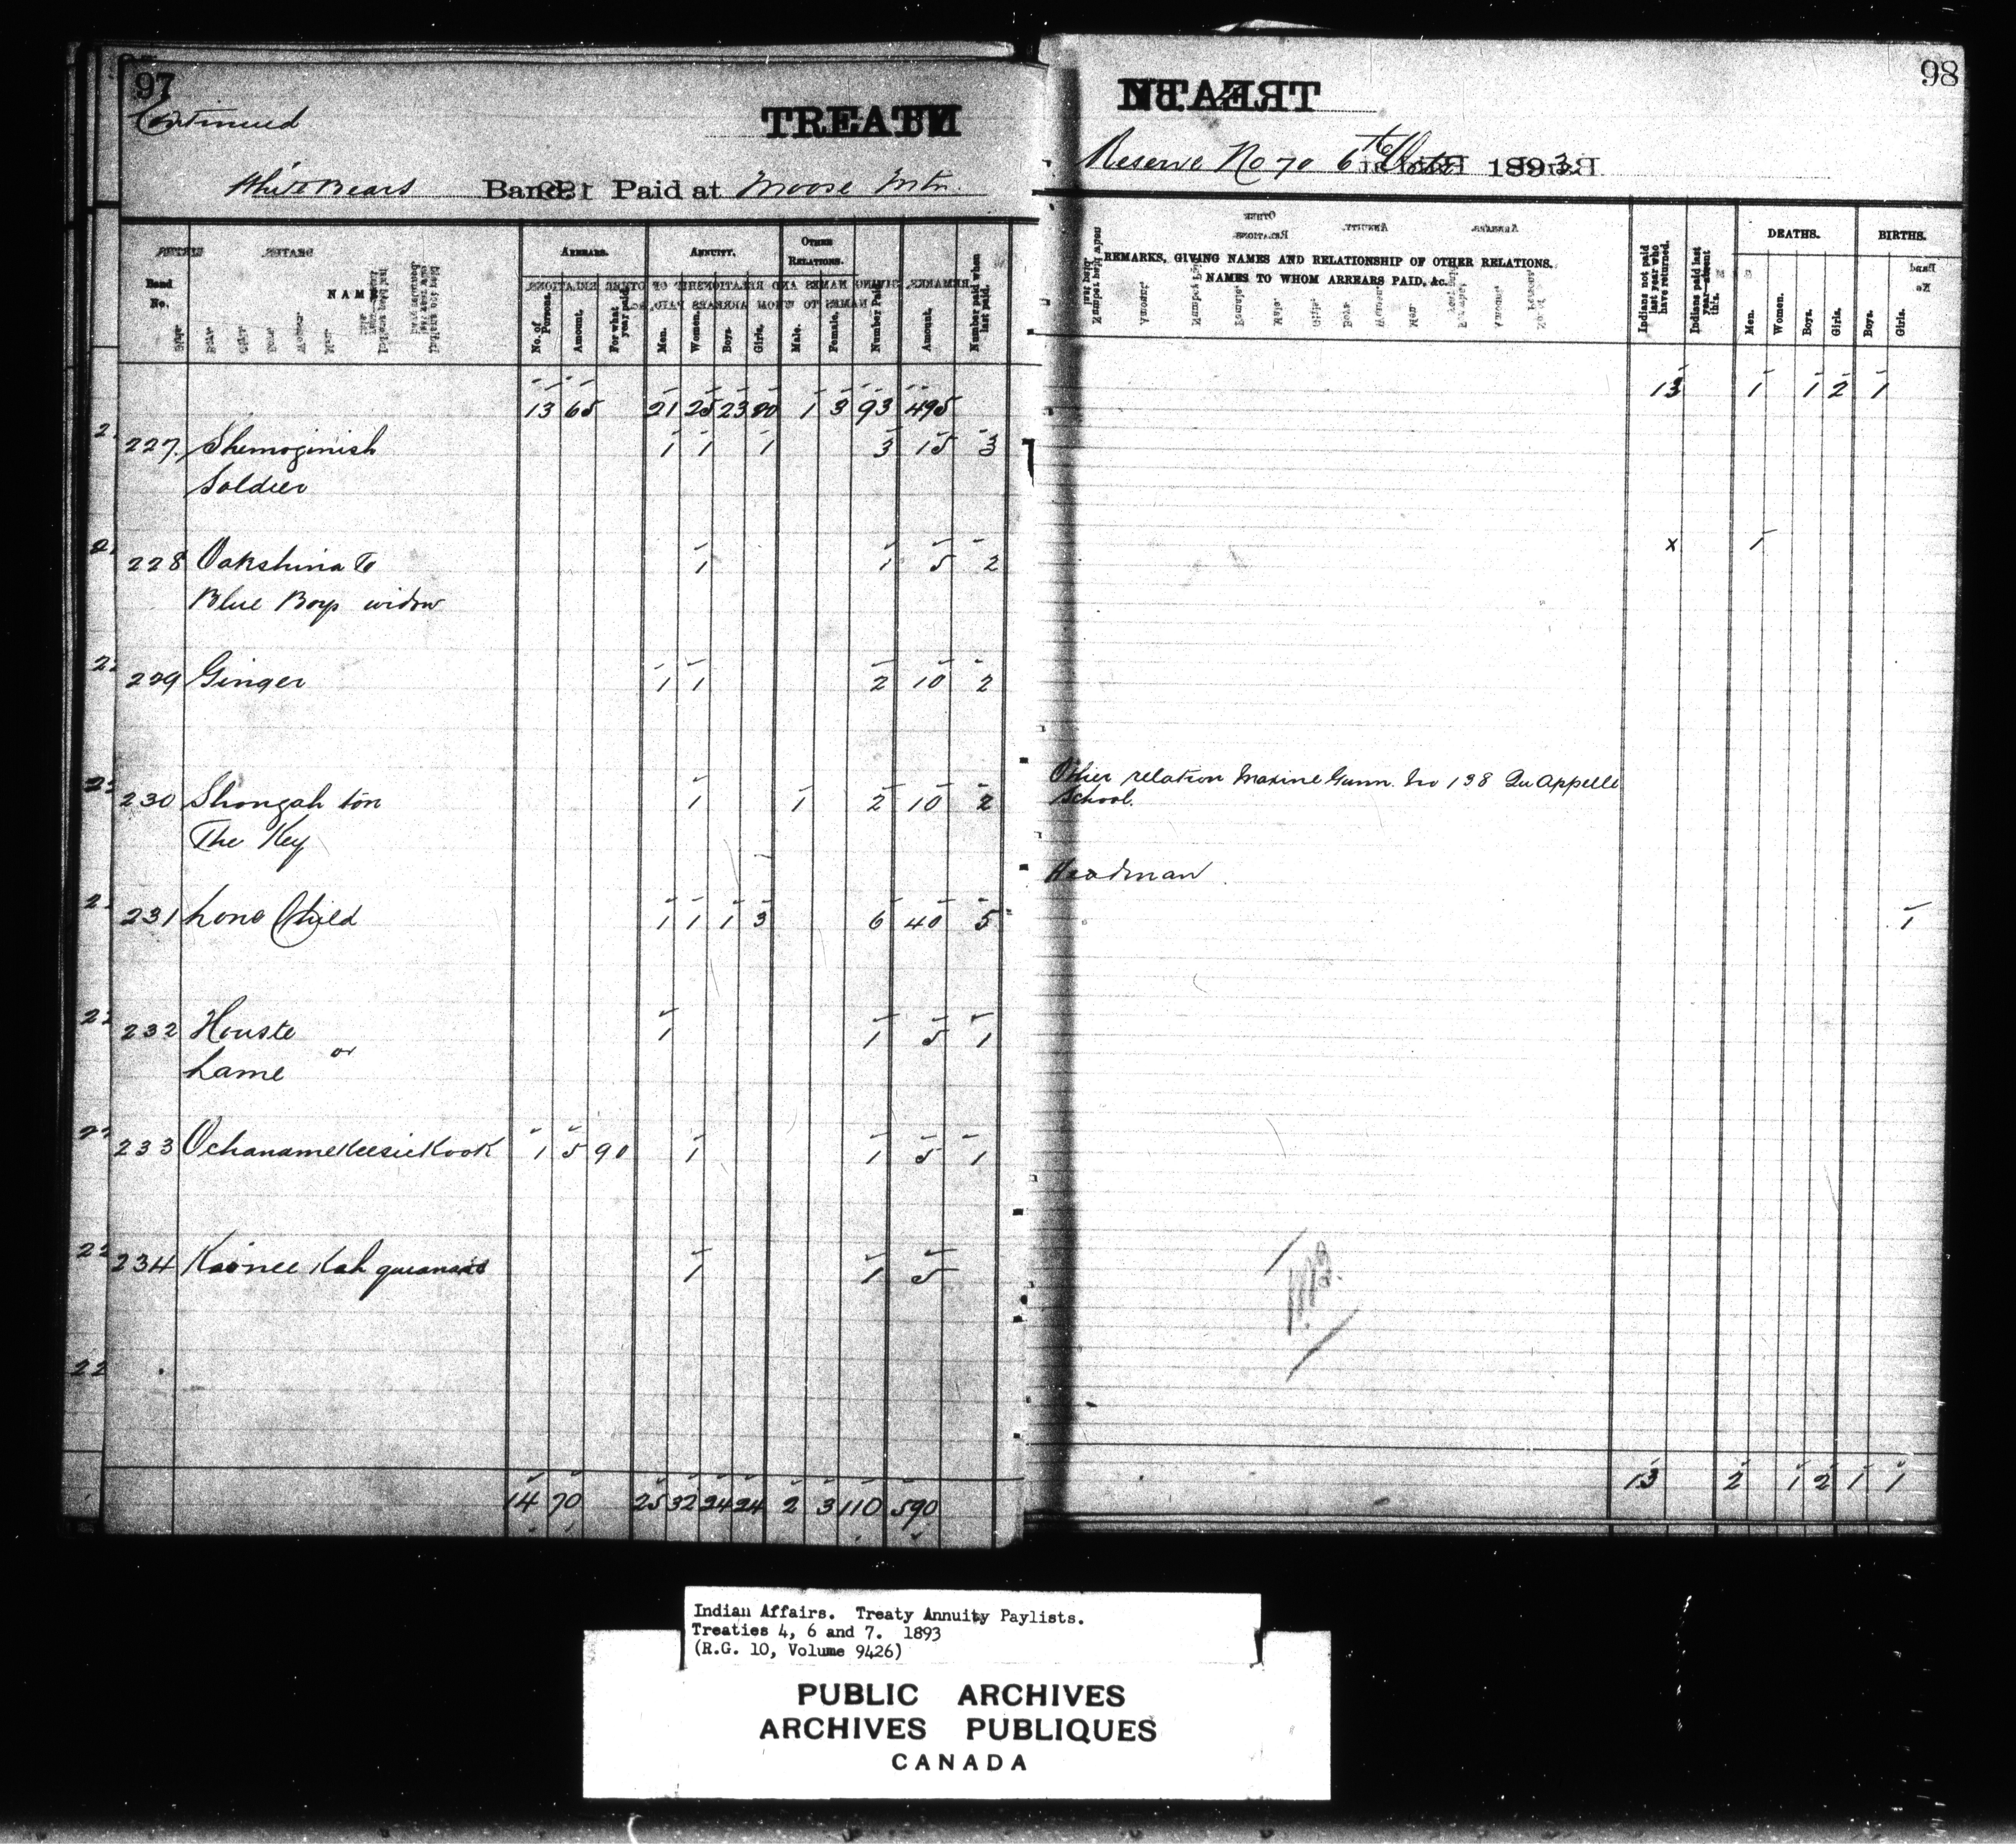 97
Continued
TREATY
White Bears Band. Paid at Moose Mtn.
Band No.
NAME
ARREARS.
No. of Persons.
Amount.
For what year paid.
ANNUITY.
Men.
Women.
Boys.
Girls.
OTHER RELATIONS.
Male.
Female.
Number Paid
Amount.
Number paid when last paid.
13 65 21 25 23 20 1 3 93 495
227. Shemoginish 1 1 1 3 15 3
Soldier
228 Oakshina To 1 1 5 2
Blue Boys widow
229 Ginger 1 1 2 10 2
230 Shongah ton 1 1 2 10 2
The Key
231 Lone Child 1 1 1 3 6 40 5
232 Houste 1 1 5 1
or
Lame
233 Ochanamekeesickook 1 5 90 1 1 5 1
234 1 1 5
14 70 25 32 24 24 2 3 110 590
98
Reserve No 70 6th Octr 1893
REMARKS, GIVING NAMES AND RELATIONSHIP OF OTHER RELATIONS.
NAMES TO WHOM ARREARS PAID, &c.
Indians not paid last year who have returned.
Indians paid last year absent this.
DEATHS.
Men.
Women.
Boys.
Girls.
BIRTHS.
Boys.
Girls.
13 1 1 2 1
x 1
Other relation Maxine Gunn. No 138 Qu'Appelle
School.
Headman
1
13 2 1 2 1 1
Indian Affairs. Treaty Annuity Paylists.
Treaties 4, 6 and 7. 1893
(R.G. 10, Volume 9426)
PUBLIC ARCHIVES
ARCHIVES PUBLIQUES
CANADA